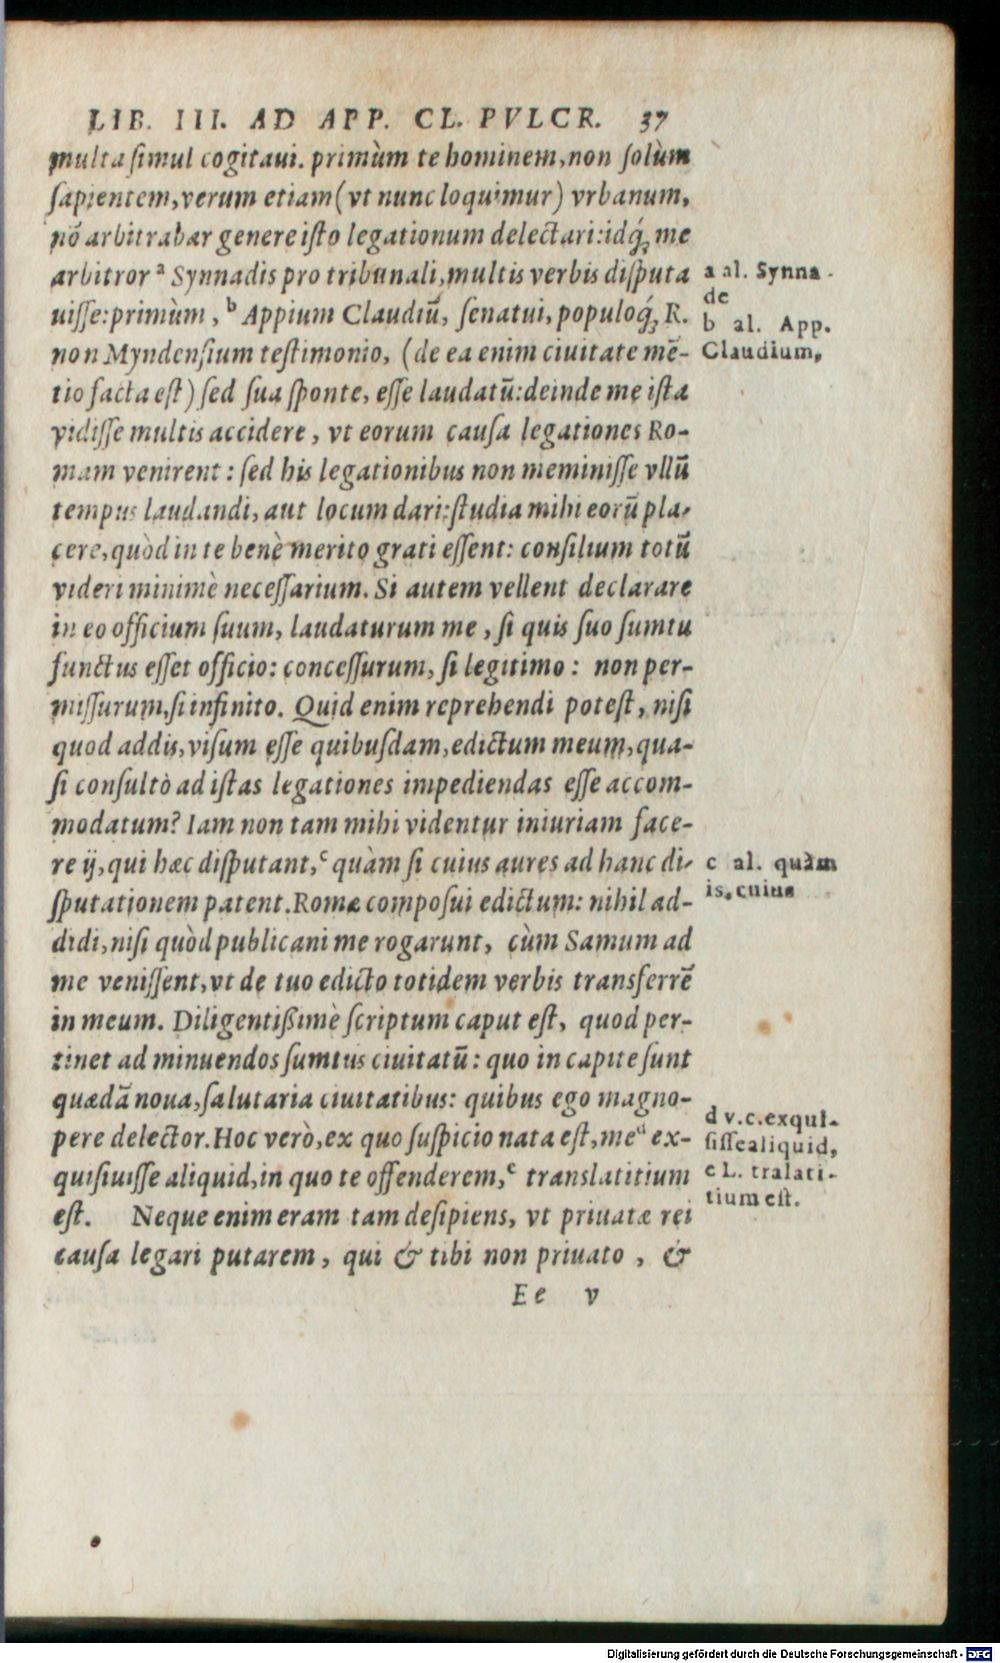 LIB. III. AD APP. CL. PVLCR. 37
multa simul cogitaui. primùm te hominem, non solùm
sapientem, verum etiam (vt nunc loquimur) vrbanum,
nõ arbitrabar genere isto legationum delectari: idq́; me
arbitror ᵃ Synnadis pro tribunali, multis verbis disputa
uisse: primùm, ᵇ Appium Claudiũ, senatui, populoq́; R.
non Myndensium testimonio, (de ea enim ciuitate mẽ-
tio facta est) sed sua sponte, esse laudatũ: deinde me ista
vidisse multis accidere, vt eorum causa legationes Ro-
mam venirent: sed his legationibus non meminisse vllũ
tempus laudandi, aut locum dari: studia mihi eorũ pla-
cere, quòd in te benè merito grati essent: consilium totũ
videri minimè necessarium. Si autem vellent declarare
in eo officium suum, laudaturum me, si quis suo sumtu
functus esset officio: concessurum, si legitimo: non per-
missurum, si infinito. Quid enim reprehendi potest, nisi
quod addis, visum esse quibusdam, edictum meum, qua-
si consultò ad istas legationes impediendas esse accom-
modatum? Iam non tam mihi videntur iniuriam face-
re ij, qui hæc disputant, ᶜ quàm si cuius aures ad hanc di-
sputationem patent. Romæ composui edictum: nihil ad-
didi, nisi quòd publicani me rogarunt, cùm Samum ad
me venissent, vt de tuo edicto totidem verbis transferrẽ
in meum. Diligentißimè scriptum caput est, quod per-
tinet ad minuendos sumtus ciuitatũ: quo in capite sunt
quædã noua, salutaria ciuitatibus: quibus ego magno-
pere delector. Hoc verò, ex quo suspicio nata est, me ᵈ ex-
quisiuisse aliquid, in quo te offenderem, ᵉ translatitium
est. Neque enim eram tam desipiens, vt priuatæ rei
causa legari putarem, qui & tibi non priuato, &
Ee v
a al. Synna-
de
b al. App.
Claudium,
c al. quàm
is, cuius
d v.c. exqui-
sisse aliquid,
e L. tralati-
tium est.
Digitalisierung gefördert durch die Deutsche Forschungsgemeinschaft - DFG